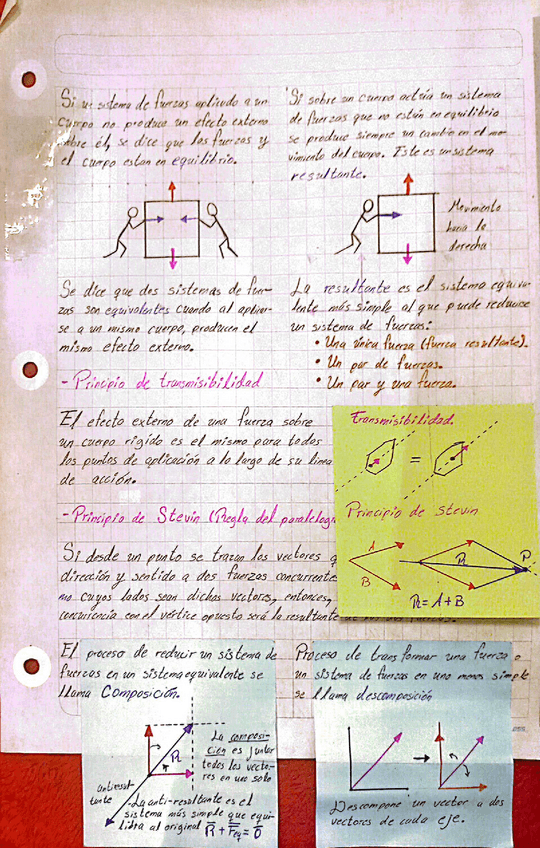 Si un sistema de fuerzas aplicado a un
cuerpo no produce un efecto externo
sobre él, se dice que las fuerzas y
el cuerpo estan en equilibrio.
Si sobre un cuerpo actúa un sistema
de fuerzas que no están en equilibrio
se produce siempre un cambio en el mo-
vimiento del cuerpo. Este es un sistema
resultante.
Movimiento
hacia la
derecha
Se dice que dos sistemas de fuer-
zas son equivalentes cuando al aplicar-
se a un mismo cuerpo, producen el
mismo efecto externo.
La resultante es el sistema equiva-
lente más simple al que puede reducirse
un sistema de fuerzas:
• Una única fuerza (fuerza resultante).
• Un par de fuerzas.
• Un par y una fuerza.
- Principio de transmisibilidad
El efecto externo de una fuerza sobre
un cuerpo rígido es el mismo para todos
los puntos de aplicación a lo largo de su linea
de acción.
Transmisibilidad.
=
Principio de Stevin
A
B
R
P
R = A + B
- Principio de Stevin (Regla del paralelogr
Si desde un punto se trazan los vectores
dirección y sentido a dos fuerzas concurrente
mo cuyos lados sean dichos vectores, entonces,
concurrencia con el vértice opuesto será la resultante
El proceso de reducir un sistema de
fuerzas en un sistema equivalente se
llama Composición.
Proceso de transformar una fuerza o
un sistema de fuerzas en uno menos simple
se llama descomposición
R
La composi-
ción es juntar
todos los vecto-
res en uno solo
antiresul-
tante
-La anti-resultante es el
sistema más simple que equi-
libra al original R + Feq = 0
Descompone un vector a dos
vectores de cada eje.